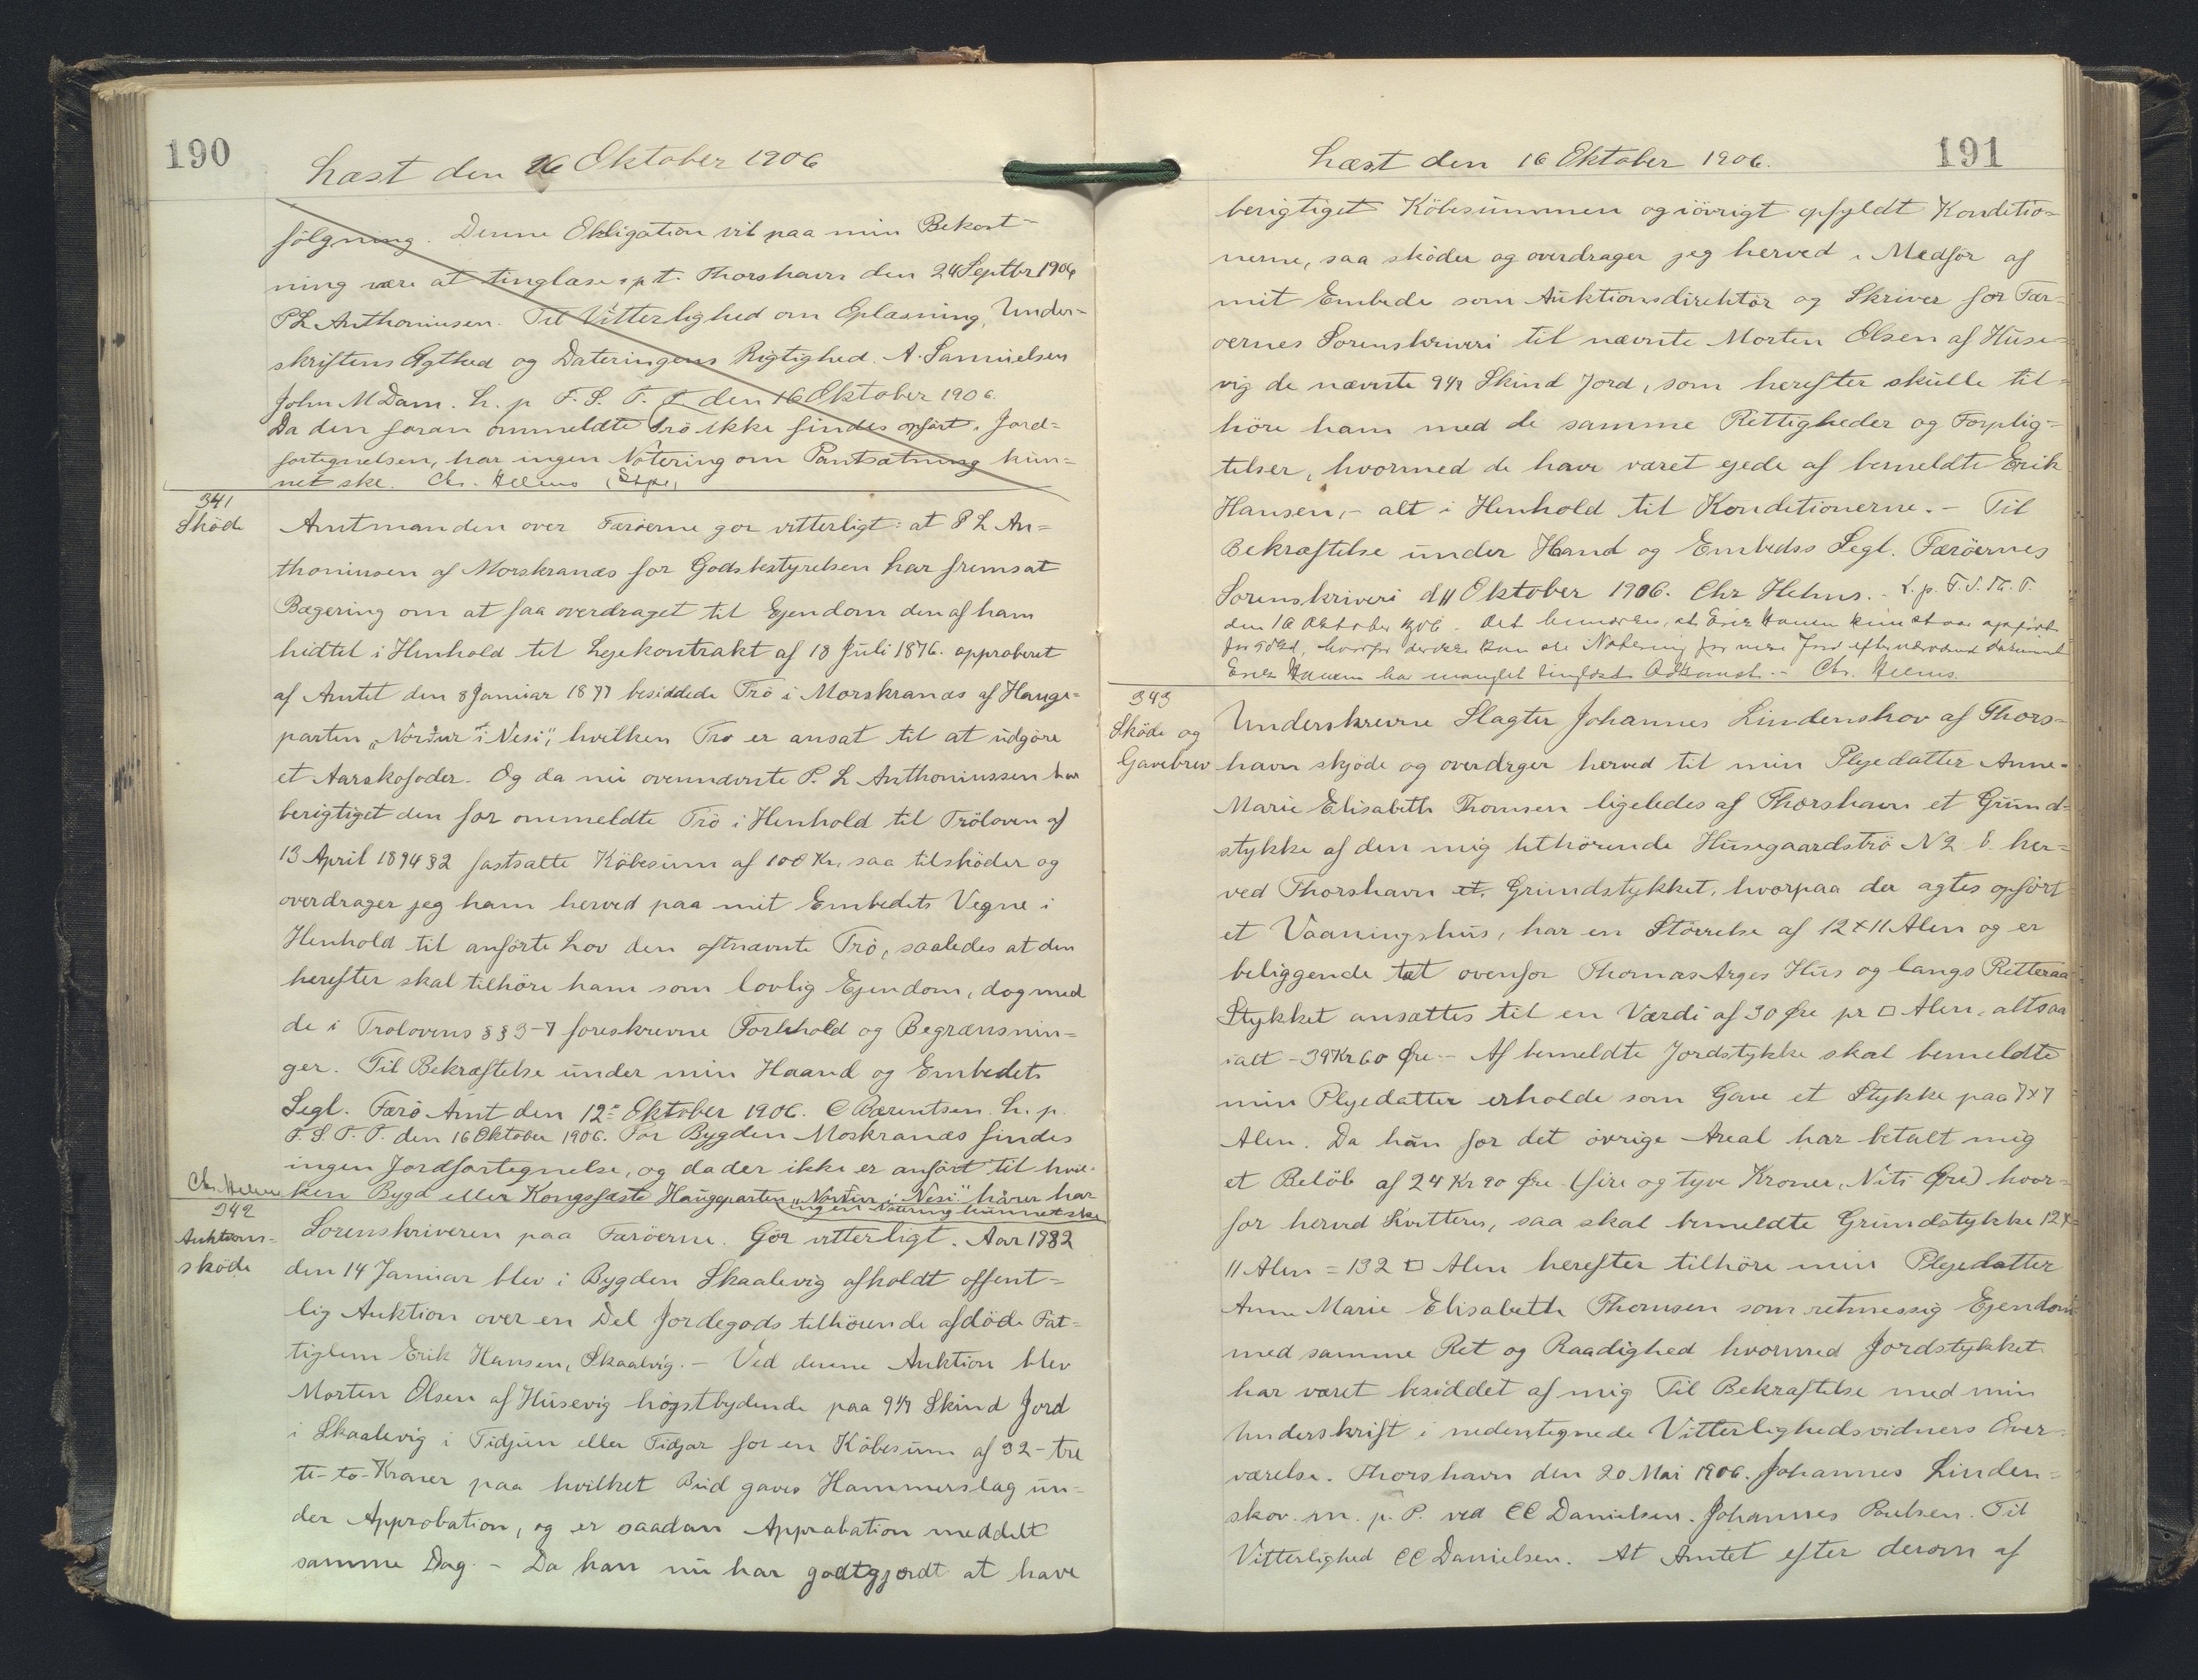 190
Læst den 16 Oktober 1906
følgning. Denne Obligation vil paa min Bekost-
ning være at tinglæse. p t. Thorshavn den 24 Septbr 1906
P L Anthoniusen. Til Vitterlighed om Oplæsning, Under-
skriftens Ægthed og Dateringens Rigtighed. A. Samuelsen
John M Dam. L. p F. S. T. T. den 16 Oktober 1906.
Da den foran ommeldte Trö ikke findes opført i Jord=
fortegnelsen, har ingen Notering om Pantsætning kun=
net ske. Chr. Helms
341
Sköde
Amtmanden over Færöerne gør vitterligt: at P L An=
thoniusen af Morskranæs for Godsbestyrelsen har fremsat
Begæring om at faa overdraget til Ejendom den af ham
hidtil i Henhold til Lejekontrakt af 18 Juli 1876. approberet
af Amtet den 8 Januar 1877 besiddede Trö i Morskranæs af Hauge-
parten „Norður i Nesi", hvilken Trö er ansat til at udgöre
et Aarskofoder. Og da nu ovennævnte P. L Anthoniussen har
berigtiget den for ommeldte Trö i Henhold til Tröloven af
13 April 1894 § 2 fastsatte Köbesum af 100 Kr, saa tilsköder og
overdrager jeg ham herved paa mit Embedets Vegne i
Henhold til anförte Lov den oftnævnte Trö, saaledes at den
herefter skal tilhöre ham som lovlig Ejendom, dog med
de i Trolovens §§ 3-7 foreskrevne Forbehold og Begrænsnin=
ger. Til Bekræftelse under min Haand og Embedets
Segl. Færö Amt den 12te Oktober 1906. C Bærentsen. L. p.
F. S. T. T. den 16 Oktober 1906. For Bygden Moskranæs findes
ingen Jordfortegnelse, og da der ikke er anfört til hvil-
ken Bygd eller Kongsfæste Haugeparten „Norður i Nesi" hörer har
ingen Notering kunnet ske
Chr. Helms
342
Auktions-
sköde
Sorenskriveren paa Færöerne. Gör vitterligt. Aar 1882
den 14 Januar blev i Bygden Skaalevig afholdt offent=
lig Auktion over en Del Jordegods tilhörende afdöde Fat=
tiglem Erik Hansen, Skaalvig. - Ved denne Auktion blev
Morten Olsen af Husevig höjstbydende paa 9 1/7 Skind Jord
i Skaalevig i Tidjun eller Tidjar for en Köbesum af 32 - tre
ti-to-Kroner paa hvilket Bud gaves Hammerslag un-
der Approbation, og er saadan Approbation meddelt
samme Dag. - Da han nu har godtgjordt at have
191
Læst den 16 Oktober 1906.
berigtiget Köbesummen og iövrigt opfyldt Konditio=
nerne, saa sköder og overdrager jeg herved i Medför af
mit Embede som Auktionsdirektör og Skriver for Fær-
öernes Sorenskriveri til nævnte Morten Olsen af Huse=
vig de nævnte 9 1/7 Skind Jord, som herefter skulle til=
höre ham med de samme Rettigheder og Forplig=
telser, hvormed de have været ejede af bemeldte Erik
Hansen, - alt i Henhold til Konditionerne. - Til
Bekræftelse under Haand og Embedss Segl. Færöernes
Sorenskriveri d 11 Oktober 1906. Chr Helms. - L. p. F. S. Th. T.
den 16 Oktober 1906. Det bemærkes, at Erik Hansen kun staar opført
for hvorfor der ikke kan ske Notering for mere Jord efter nærværende Dokument
Erik Hansen har manglet tinglæst Adkomst. - Chr. Helms.
343
Sköde og
Gavebrev
Underskrevne Slagter Johannes Lindenskov af Thors=
havn skjøde og overdrger herved til min Plejedatter Anne-
Marie Elisabeth Thomsen ligeledes af Thorshavn et Grund=
stykke af den mig tilhörende Husegaardströ N 2 b. her=
ved Thorshavn et. Grundstykket, hvorpaa der agtes opfört
et Vaaningshus, har en Störrelse af 12 x 11 Alen og er
beliggende tæt ovenfor Thomas Arges Hus og langs Ritteraa
Stykket ansættes til en Værdi af 30 Øre pr □ Alen, altsaa
ialt - 39 Kr 60 Øre. - Af bemeldte Jordstykke skal bemeldte
min Plejedatter erholde som Gave et Stykke paa 7 x 7
Alen. Da hun for det övrige Areal har betalt mig
et Belöb af 24 Kr 90 Øre. (fire og tyve Kroner, Niti Øre) hvor-
for herved Kvitteres, saa skal bemeldte Grundstykke 12 x
11 Alen = 132 □ Alen herefter tilhöre min Plejedatter
Anne Marie Elisabeth Thomsen som retmessig Ejendom
med samme Ret og Raadighed hvormed Jordstykket
har været besiddet af mig Til Bekræftelse med min
Underskrift i nedentegnede Vitterlighedsvidners Over-
værelse. Thorshavn den 20 Mai 1906. Johannes Linden=
skov. m. p. P. ved CC Danielsen. Johannes Poulsen. Til
Vitterlighed CC Danielsen. At Amtet efter derom af